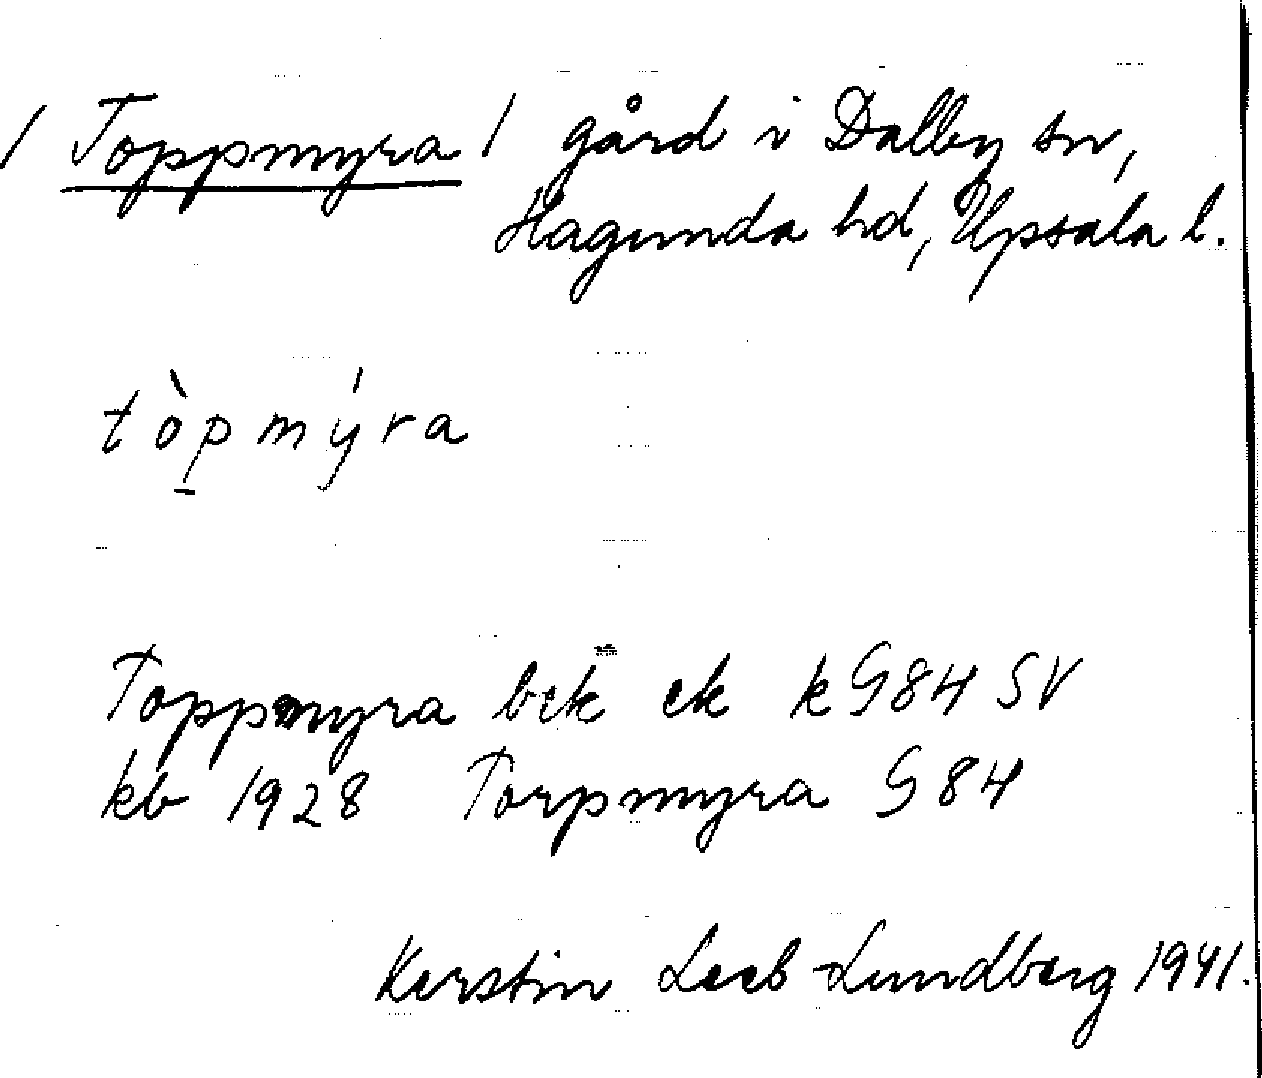 / Toppmyra / gård i Dalby sn,
Hagunda hd, Upsala l.
tòp̠mýra
Toppmyra bek ek k G84 SV
kb 1928 Torpmyra G84
Kerstin Leeb-Lundberg 1941.